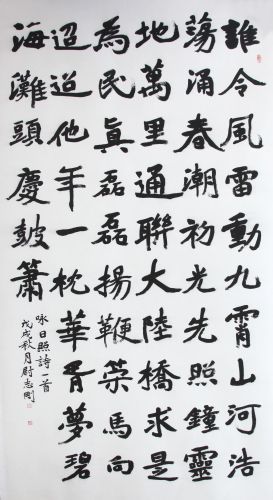 誰令風雷動九霄山河浩
蕩涌春潮初光先照鐘靈
地萬里通聯大陸橋求是
為民眞磊磊揚鞭策馬向
迢迢他年一枕華胥夢碧
海灘頭慶皷簫
咏日照詩一首
戊戌秋月尉志剛